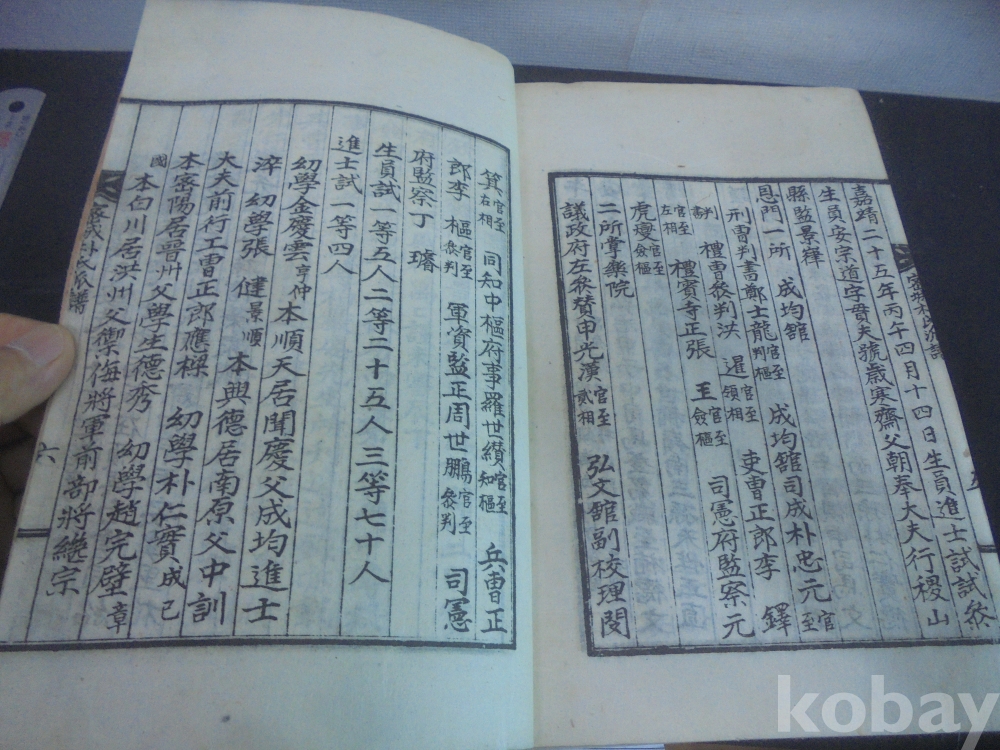 嘉靖二十五年丙午四月十四日生員進士試試
生員安宗道字貫夫號歲寒齋父朝奉大夫行稷山
縣監景
恩門一所 成均館 成均館司成朴忠元官至
刑曹判書鄭士龍官至判樞 吏曹正郎李鐸
判書 禮曹參判洪暹官至領相 司憲府監察元
左相 禮賓寺正張玉官至僉樞
虎變官至僉樞
二所掌樂院
議政府左參贊申光漢官至貳相 弘文館副校理閔
箕官至左相 同知中樞府事羅世纘官至知樞 兵曹正
郎李樞官至參判 軍資監正周世鵬官至參判 司憲
府監察丁璿
生員試一等五人二等二十五人三等七十人
進士試一等四人
幼學金慶雲亨仲 本順天居聞慶父成均進士
淬 幼學張健景順 本興德居南原父中訓
大夫前行工曹正郎應樑 幼學朴仁實成己
本密陽居晉州父學生德秀 幼學趙完璧章
國 本白川居洪州父禦侮將軍前部將繼宗
六
kobay